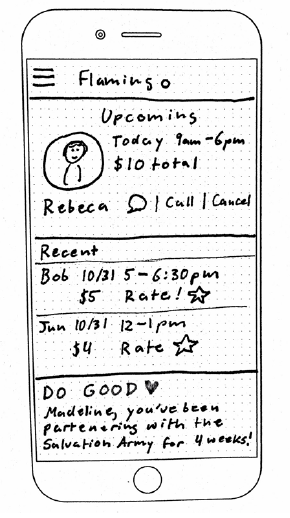 Flamingo
Upcoming
Today 9am-6pm
$10 total
Rebeca | Call | Cancel
Recent
Bob 10/31 5-6:30pm
$5 Rate!
Jun 10/31 12-1pm
$4 Rate
DO GOOD ♥
Madeline, you've been
partenering with the
Salvation Army for 4 weeks!